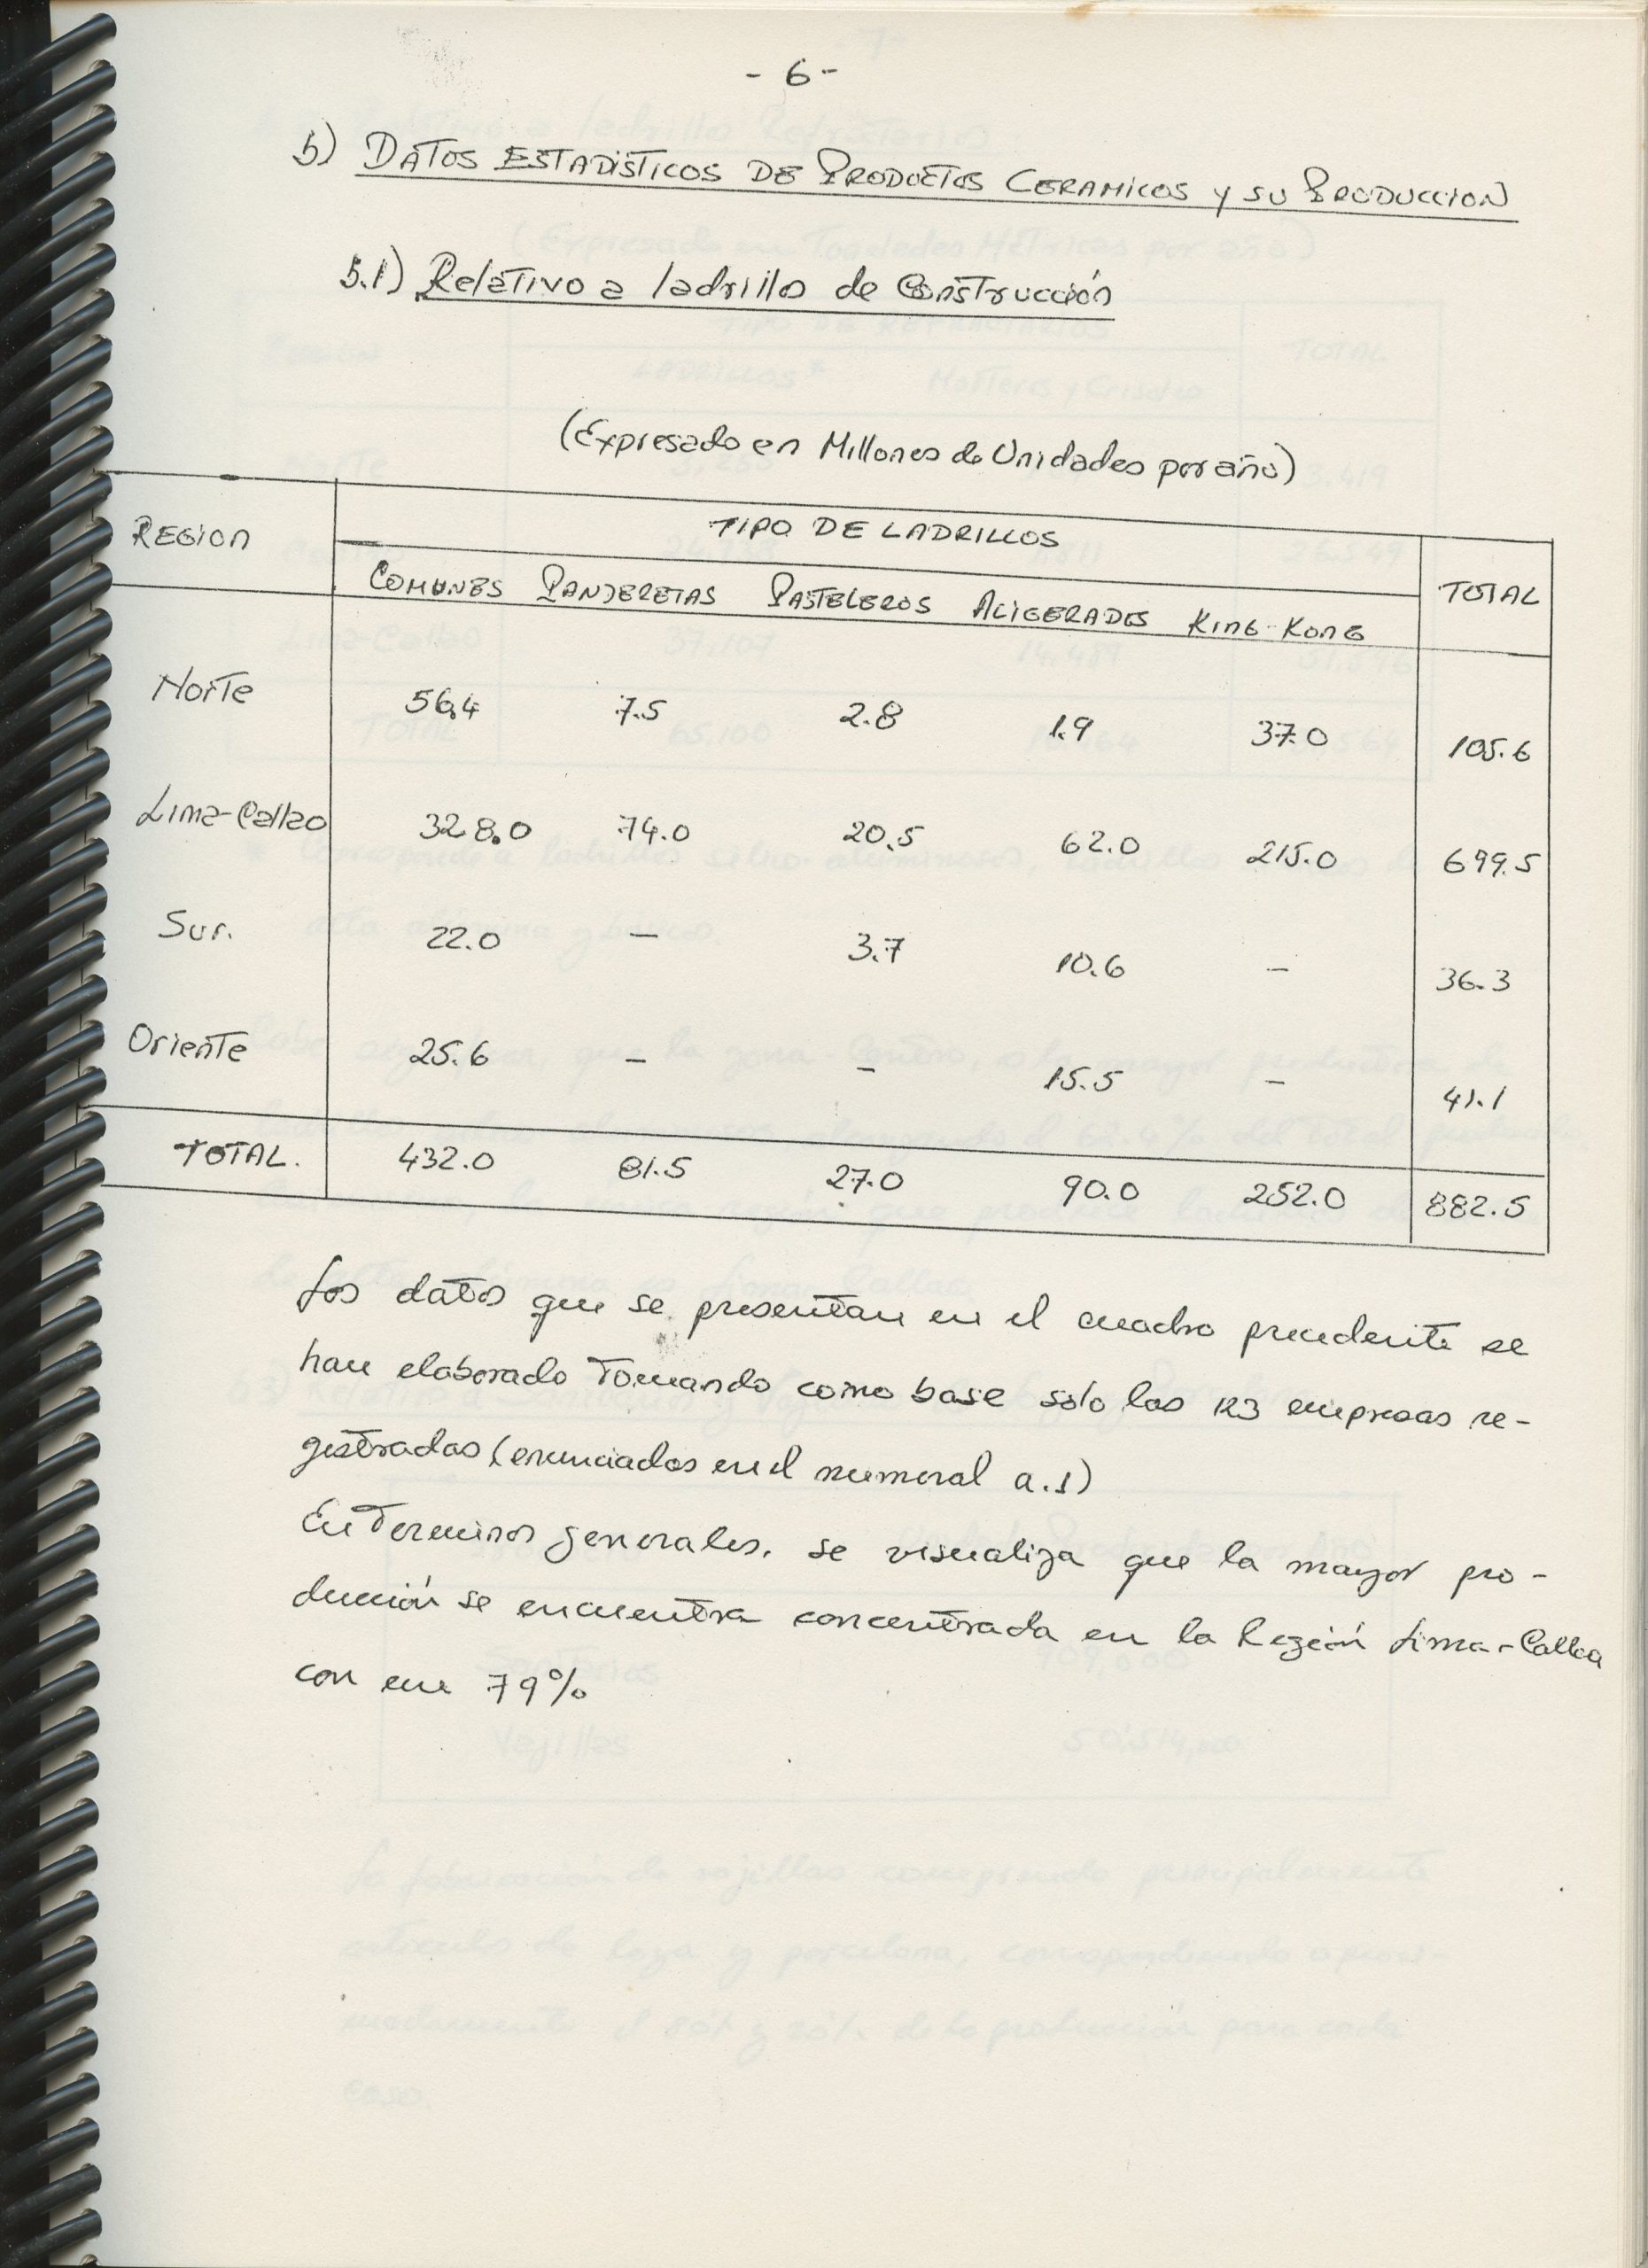 - 6 -
b) DATOS ESTADISTICOS DE PRODUCTOS CERAMICOS Y SU PRODUCCION
b.1) Relativo a ladrillo de Construcción
(Expresado en Millones de Unidades por año)
REGION TIPO DE LADRILLOS TOTAL
COMUNES PANDERETAS PASTELEROS ALIGERADOS KING-KONG
Norte 56.4 7.5 2.8 1.9 37.0 105.6
Lima-Callao 328.0 74.0 20.5 62.0 215.0 699.5
Sur. 22.0 — 3.7 10.6 — 36.3
Oriente 25.6 — — 15.5 — 41.1
TOTAL. 432.0 81.5 27.0 90.0 252.0 882.5
Los datos que se presentan en el cuadro precedente se
han elaborado Tomando como base solo las 123 empresas re-
gistradas (enunciados en el numeral a.1)
En Terminos generales, se visualiza que la mayor pro-
ducción se encuentra concentrada en la Región Lima-Callao
con un 79%